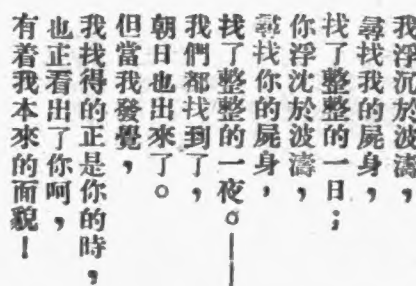 我浮沉於波濤，
尋找我的屍身，
找了整整的一日；
你浮沈於波濤，
尋找你的屍身，
找了整整的一夜。——
我們都找到了，
朝日也出來了。
但當我發覺，
我找得的正是你的時，
也正看出了你呵，
有着我本來的面貌！